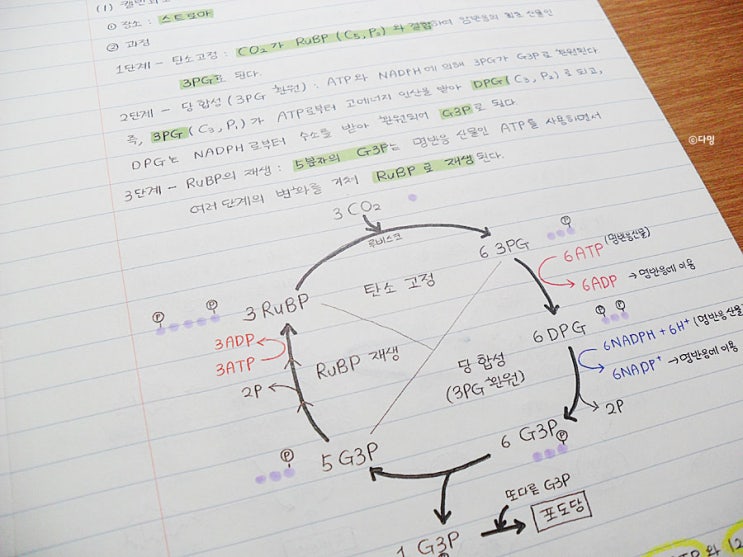 (1) 캘빈회로
① 장소 : 스트로마
② 과정
1단계 - 탄소고정 : CO₂가 RuBP (C₅, P₂) 와 결합하여 명반응의 최초 산물인
3PG로 된다.
2단계 - 당 합성 (3PG 환원) : ATP와 NADPH에 의해 3PG가 G3P로 환원된다
즉, 3PG (C₃, P₁) 가 ATP로부터 고에너지 인산을 받아 DPG (C₃, P₂) 로 되고,
DPG는 NADPH로부터 수소를 받아 환원되어 G3P로 된다.
3단계 - RuBP의 재생 : 5분자의 G3P는 명반응 산물인 ATP를 사용하면서
여러 단계의 변화를 거쳐 RuBP로 재생된다.
ⓒ다밍
3 CO₂
루비스코
6 3PG
P
6ATP (명반응산물)
6ADP → 명반응에 이용
탄소 고정
P P
3 RuBP
6 DPG
P P
3ADP
3ATP
6NADPH + 6H⁺ (명반응산물
6NADP⁺ → 명반응에 이용
RuBP 재생
당 합성
(3PG 환원)
2P
2P
P
5 G3P
6 G3P
P
또다른 G3P
포도당
1 G3P
와